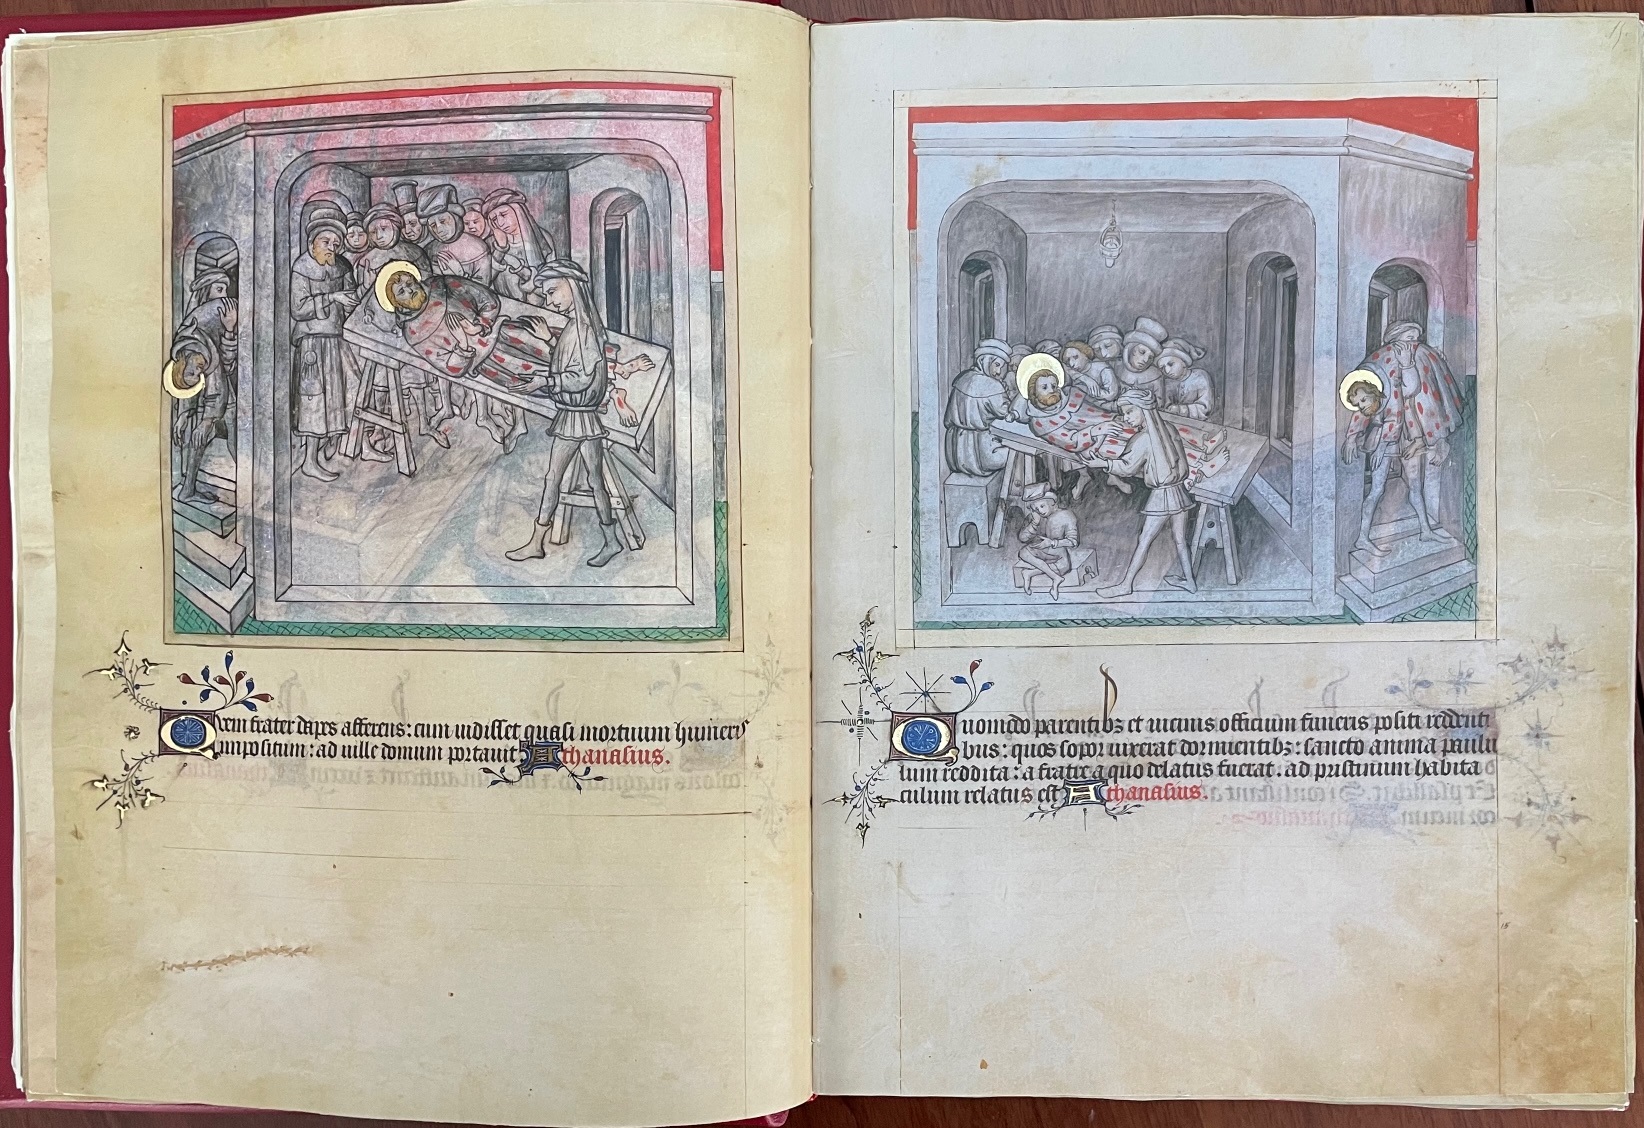 Quem frater dapes afferens: cum vidisset quasi mortuum humeris
impositum: ad ville domum portavit Athanasius.
15
Quomodo parentibz et vicinis officium funeris positi reddenti
bus: quos sopor vixerat dormientibz: sancto anima paulu
lum reddita: a fratre a quo delatus fuerat. ad pristinum habita
culum relatus est Athanasius.
15